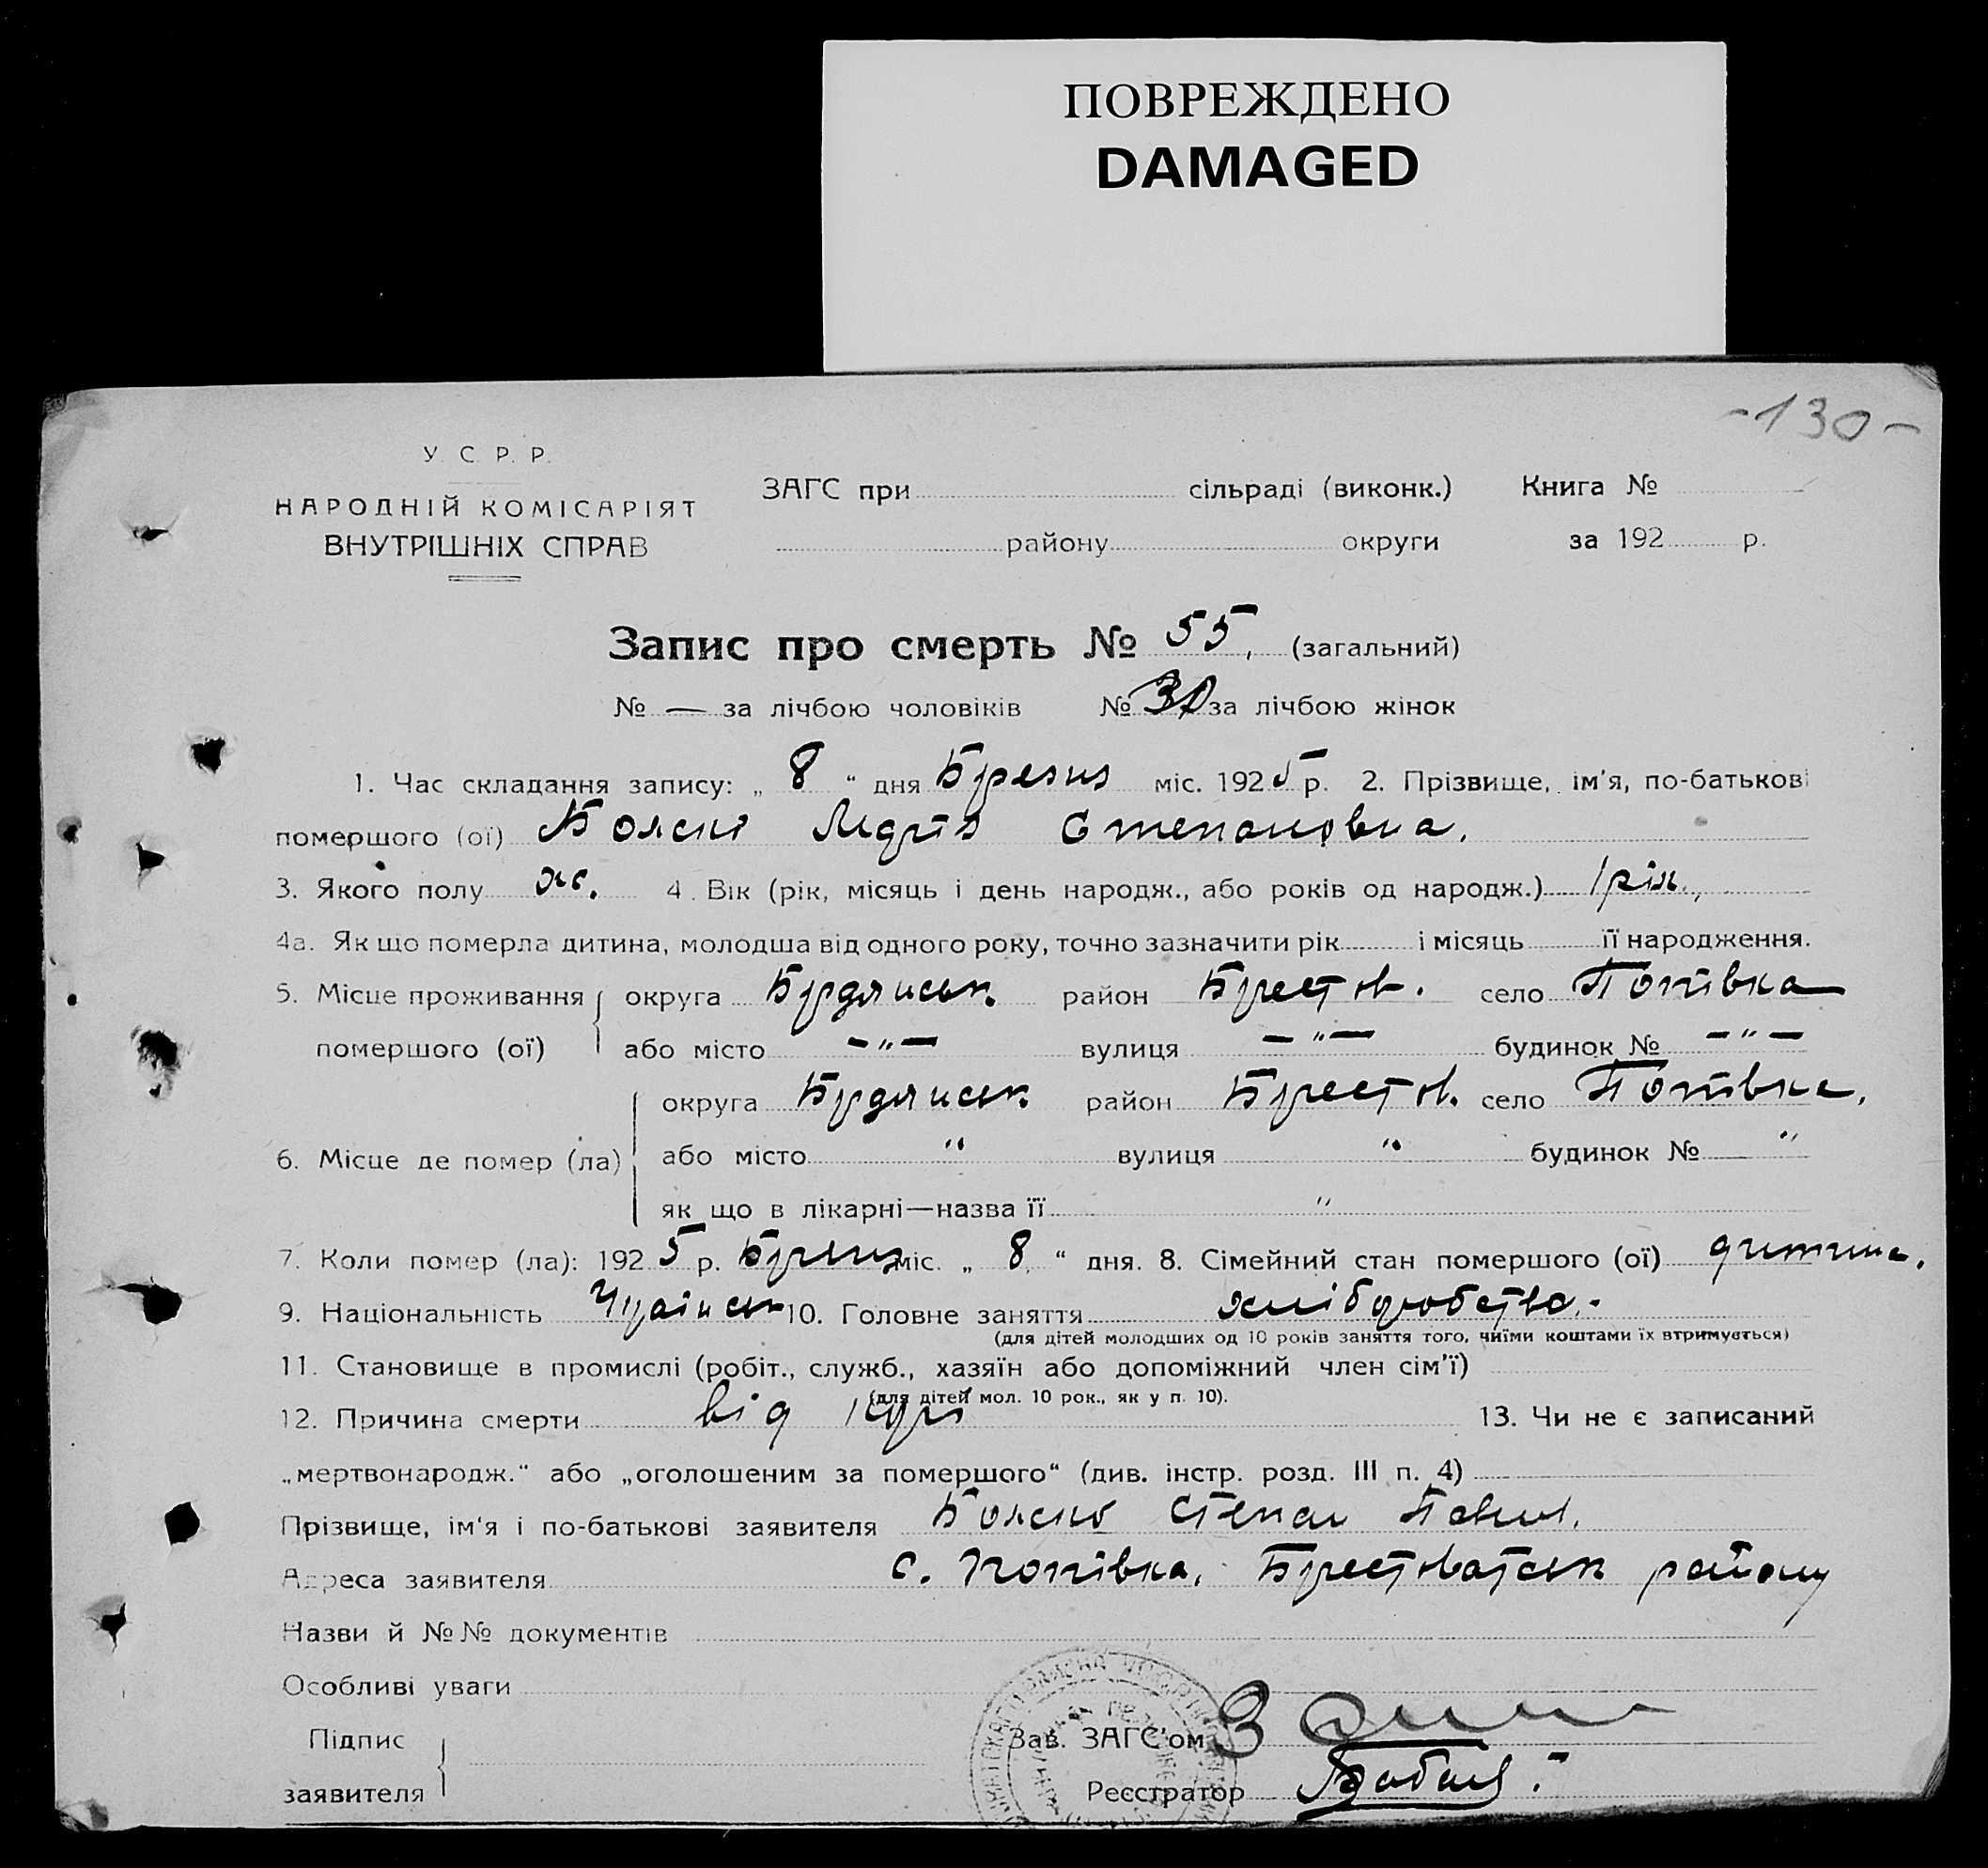 ПОВРЕЖДЕНО
DAMAGED
-130-
У. С. Р. Р.
НАРОДНІЙ КОМІСАРІЯТ
ВНУТРІШНІХ СПРАВ
ЗАГС при сільраді (виконк.) Книга №
району округи за 192 р.
Запис про смерть № 55, (загальний)
№ — за лічбою чоловіків № 30 за лічбою жінок
1. Час складання запису: „ 8 “ дня Березня міс. 1925 р. 2. Прізвище, ім'я, по-батькові
помершого (ої) Марія Степановна.
3. Якого полу ж. 4. Вік (рік, місяць і день народж., або років од народж.) 1 рік.,
4а. Як що померла дитина, молодша від одного року, точно зазначити рік і місяць її народження.
5. Місце проживання округа Бердянськ. район Берестов. село Попівка
помершого (ої) або місто — „ — вулиця — „ — будинок № — „ —
округа Бердянськ район Берестов. село Попівка,
6. Місце де помер (ла) або місто „ вулиця „ будинок № „
як що в лікарні—назва її „
7. Коли помер (ла): 1925 р. Березня міс. „ 8 “ дня. 8. Сімейний стан помершого (ої) дитина.
9. Національність 10. Головне заняття хліборобство.
(для дітей молодших од 10 років заняття того, чиїми коштами їх втримується)
11. Становище в промислі (робіт., служб., хазяїн або допоміжний член сім'ї)
(для дітей мол. 10 рок., як у п. 10).
12. Причина смерти від корі 13. Чи не є записаний
„мертвонародж.“ або „оголошеним за помершого“ (див. інстр. розд. III п. 4)
Прізвище, ім'я і по-батькові заявителя Степан Павл.
Адреса заявителя с. Попівка, Берестоватськ району
Назви й №№ документів
Особливі уваги
Підпис
заявителя
Зав. ЗАГС'ом
Реєстратор